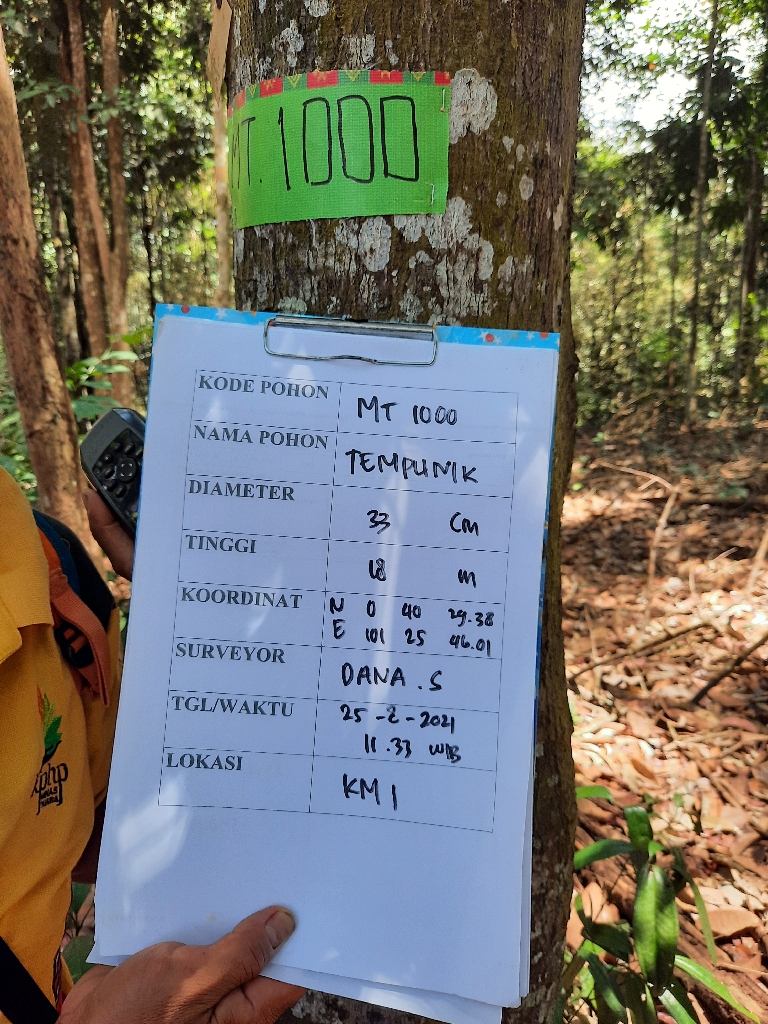 MT. 1000
KODE POHON MT 1000
NAMA POHON TEMPUNIK
DIAMETER 33 Cm
TINGGI 18 m
KOORDINAT N 0 40 29.38
E 101 25 46.01
SURVEYOR DANA . S
TGL/WAKTU 25 -2- 2021
11.33 WIB
LOKASI KM 1
kphp
MINAS
TAHURA